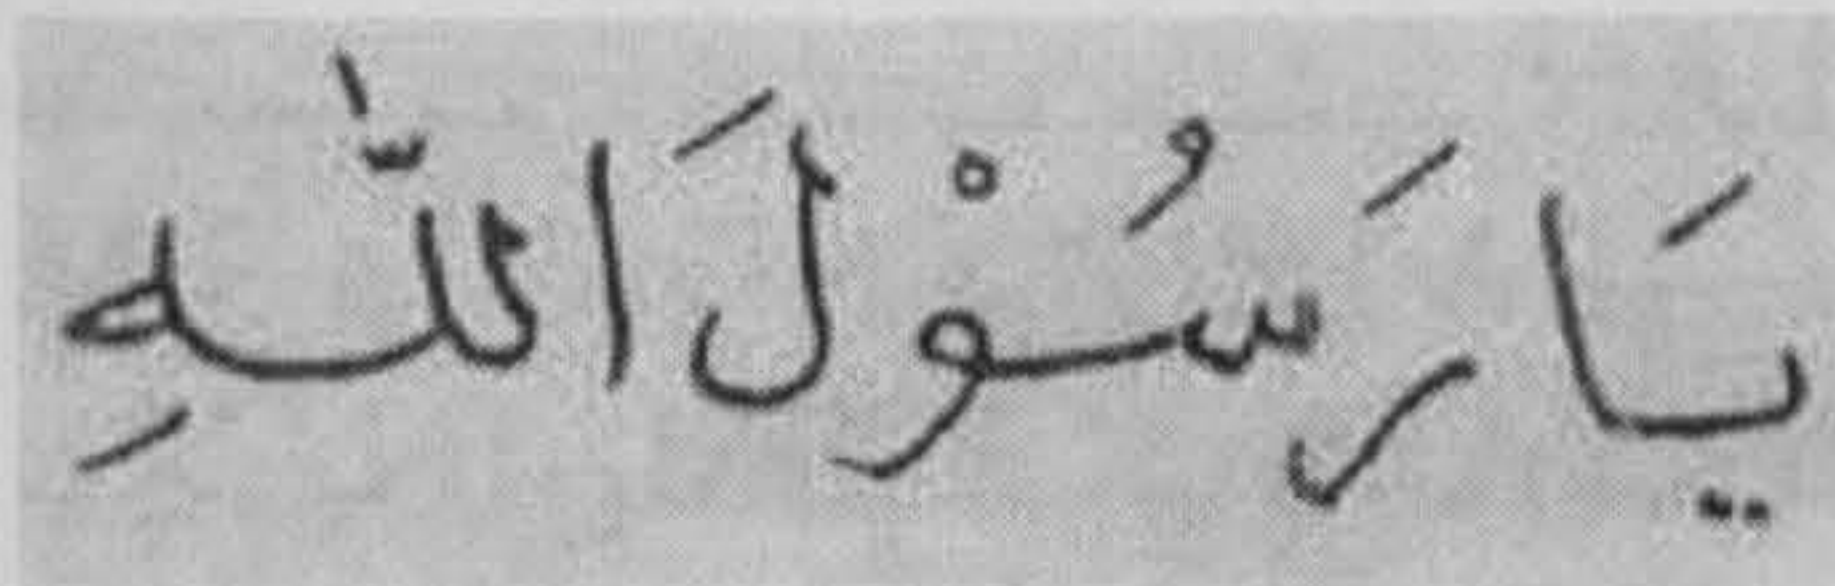 يَا رَسُوْلَ اللّٰهِ